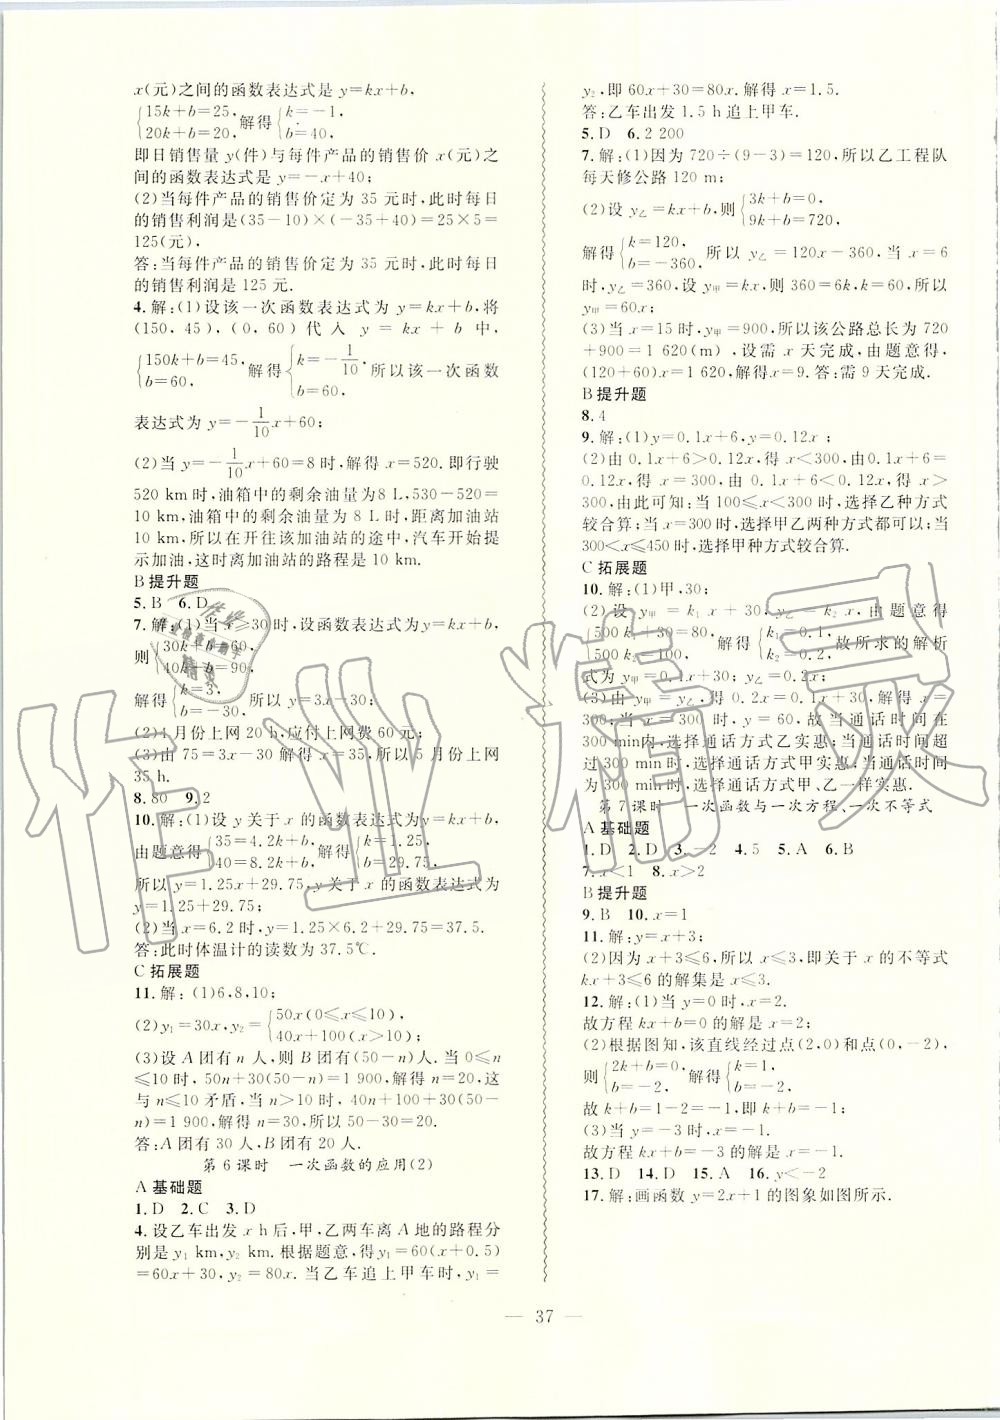 x(元)之间的函数表达式是 y=kx+b,
{15k+b=25, 20k+b=20, 解得 {k=-1, b=40,
即日销售量 y(件)与每件产品的销售价 x(元)之
间的函数表达式是 y=-x+40;
(2)当每件产品的销售价定为 35 元时,此时每日
的销售利润是(35-10)×(-35+40)=25×5=
125(元),
答:当每件产品的销售价定为 35 元时,此时每日
的销售利润是 125 元.
4.解:(1)设该一次函数表达式为 y=kx+b,将
(150,45),(0,60)代入 y=kx+b 中,
{150k+b=45, b=60, 解得 {k=-1/10, b=60, 所以该一次函数
表达式为 y=-1/10x+60;
(2)当 y=-1/10x+60=8 时,解得 x=520.即行驶
520 km时,油箱中的剩余油量为8 L,530-520=
10 km,油箱中的剩余油量为 8 L时,距离加油站
10 km,所以在开往该加油站的途中,汽车开始提
示加油,这时离加油站的路程是 10 km.
B提升题
5.B 6.D
7.解:(1)当 x≥30时,设函数表达式为y=kx+b,
则{30k+b=60, 40k+b=90,
解得{k=3, b=-30, 所以 y=3x-30;
(2)4月份上网 20 h,应付上网费60元;
(3)由 75=3x-30 解得 x=35,所以 5 月份上网
35 h.
8.80 9.2
10.解:(1)设 y 关于 x 的函数表达式为 y=kx+b,
由题意得{35=4.2k+b, 40=8.2k+b, 解得{k=1.25, b=29.75,
所以 y=1.25x+29.75,y关于 x 的函数表达式为
y=1.25+29.75;
(2)当 x=6.2 时,y=1.25×6.2+29.75=37.5.
答:此时体温计的读数为 37.5℃.
C拓展题
11.解:(1)6,8,10;
(2)y₁=30x,y₂={50x(0≤x≤10), 40x+100(x>10);
(3)设 A 团有 n 人,则 B 团有(50-n)人.当 0≤n
≤10时,50n+30(50-n)=1 900,解得 n=20,这
与 n≤10 矛盾,当 n>10 时,40n+100+30(50
-n)=1 900,解得 n=30,所以 50-30=20.
答:A团有 30 人,B团有 20 人.
第6课时 一次函数的应用(2)
A基础题
1.D 2.C 3.D
4.设乙车出发 x h后,甲、乙两车离 A 地的路程分
别是 y₁ km,y₂ km.根据题意,得y₁=60(x+0.5)
=60x+30,y₂=80x.当乙车追上甲车时,y₁=
y₂,即 60x+30=80x.解得 x=1.5.
答:乙车出发 1.5 h 追上甲车.
5.D 6.2 200
7.解:(1)因为 720÷(9-3)=120,所以乙工程队
每天修公路 120 m;
(2)设 y乙=kx+b,则{3k+b=0, 9k+b=720,
解得{k=120, b=-360, 所以 y乙=120x-360,当 x=6
时,y乙=360,设 y甲=kx,则 360=6k,k=60,所以
y甲=60x;
(3)当 x=15 时,y甲=900,所以该公路总长为 720
+900=1 620(m),设需 x 天完成,由题意得,
(120+60)x=1 620,解得x=9.答:需 9天完成.
B提升题
8.4
9.解:(1)y=0.1x+6,y=0.12x;
(2)由 0.1x+6>0.12x,得 x<300,由 0.1x+6=
0.12x,得 x=300,由 0.1x+6<0.12x,得 x>
300,由此可知:当 100≤x<300 时,选择乙种方式
较合算;当 x=300 时,选择甲乙两种方式都可以;当
300<x≤450 时,选择甲种方式较合算.
C拓展题
10.解:(1)甲,30;
(2)设 y甲=k₁x+30,y乙=k₂x,由题意得
{500k₁+30=80, 500k₂=100, 解得{k₁=0.1, k₂=0.2, 故所求的解析
式为 y甲=0.1x+30;y乙=0.2x;
(3)由 y甲=y乙,得 0.2x=0.1x+30,解得 x=
300;当 x=300 时,y=60,故当通话时间在
300 min内,选择通话方式乙实惠;当通话时间超
过 300 min 时,选择通话方式甲实惠;当通话时间
为 300 min时,选择通话方式甲、乙一样实惠.
第7课时 一次函数与一次方程、一次不等式
A基础题
1.D 2.D 3.-2 4.5 5.A 6.B
7.x<1 8.x>2
B提升题
9.B 10.x=1
11.解:y=x+3;
(2)因为 x+3≤6,所以 x≤3,即关于 x 的不等式
kx+3≤6 的解集是 x≤3.
12.解:(1)当 y=0 时,x=2,
故方程 kx+b=0 的解是 x=2;
(2)根据图知,该直线经过点(2,0)和点(0,-2),
则 {2k+b=0, b=-2, 解得{k=1, b=-2,
故 k+b=1-2=-1,即 k+b=-1;
(3)当 y=-3 时,x=-1.
故方程 kx+b=-3 的解是 x=-1.
13.D 14.D 15.A 16.y<-2
17.解:画函数 y=2x+1 的图象如图所示.
— 37 —
作业精灵